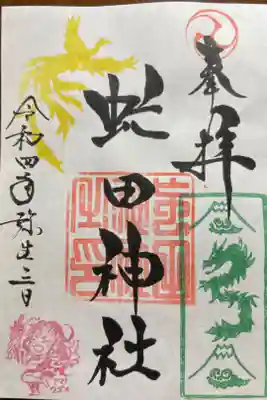 奉拝
虻田神社
令和四年弥生三日